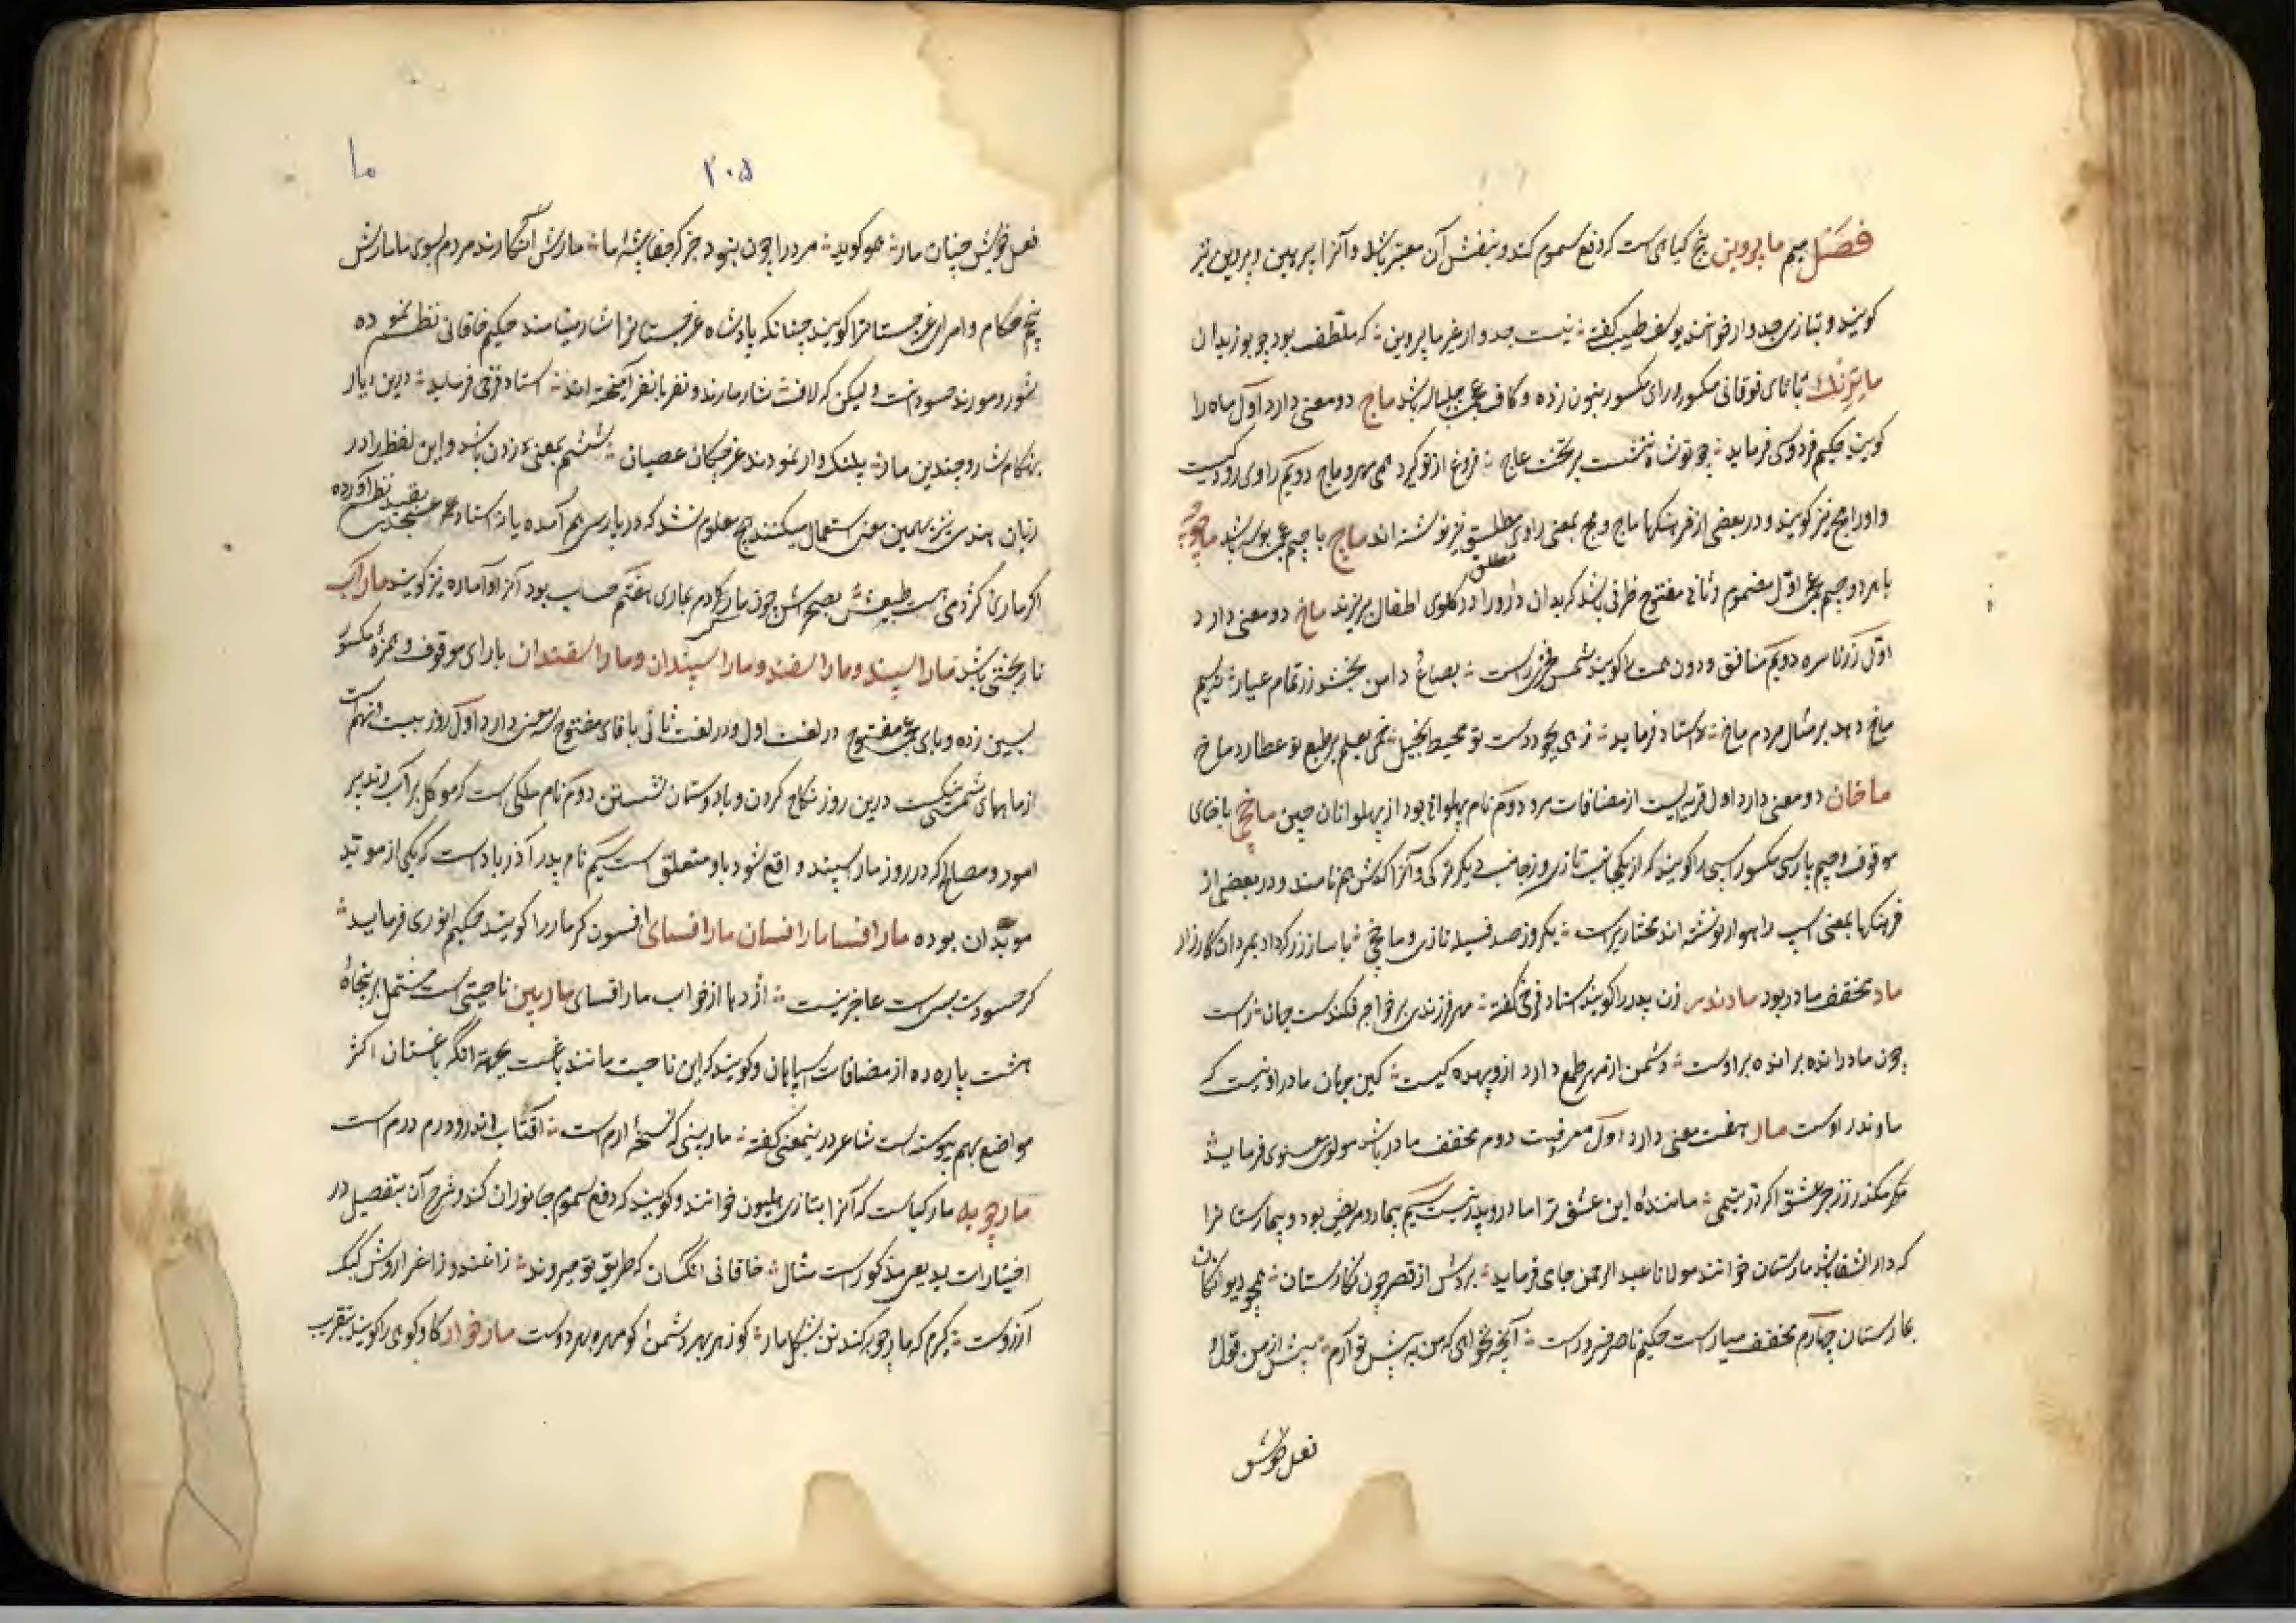 فصل میم ماپروین بیخ گیاهی است که دفع سموم کند و بنفش آن معتبر باشد و آنرا پرپهن و پروین نیز
کویند و بتازی جدوار خوانند یوسف طبیب گفته نیست جدوار غیر ماپروین که ملطف بود چو بوزیدان
ماترنک با تای فوقانی مکسور و رای مکسور بنون زده و کاف عجمی چلپاسه باشد ماج دو معنی دارد اول ماه را
کویند حکیم فردوسی فرماید چو تو شاه ننشست بر تخت عاج فروغ از تو گیرد همی مهر و ماج دویم راوی رودکیست
و او را مج نیز کویند و در بعضی از فرهنکها ماج و مج بمعنی راوی مطلق نیز نوشته اند ماچ با جیم عجمی بوسه باشد ماچوچه
با هر دو جیم عجمی اول مضموم و ثانی مفتوح ظرفی باشد که بدان دارو را در گلوی اطفال بریزند ماخ دو معنی دارد
اول زر ناسره دویم منافق و دون همت را کویند شمس فخری راست بصباغ دامن بخشد زر تمام عیار نه سیم
ماخ دهد بر مثال مردم ماخ و استاد فرماید زهی بجود دست تو محیط بخیل خهی بعلم بر طبع تو عطارد ماخ
ماخان دو معنی دارد اول قریه ایست از مضافات مرو دوم نام پهلوانی بود از پهلوانان چین ماخچی با خای
موقوف و جیم پارسی مکسور اسپی را کویند که از یکجانب تازی و از جانب دیگر ترکی و آنرا اکدش هم نامند و در بعضی از
فرهنکها بمعنی اسپ راهوار نوشته اند مختاری راست یکروز صد فسیله تازی و ماخچی با ساز زر که داد بمردان کارزار
ماد مخفف مادر بود مادندر زن پدر را کویند استاد فرخی گفته مهر فرزندی بر خواجه فکندست جهان راست
چون مادر انده بر انده بر اوست دشمن از مهر طمع دارد از و بیهده کیست کین جهان مادر او نیست که
ماوندر اوست مار هفت معنی دارد اول معروفیست دوم مخفف مادر باشد مولوی معنوی فرماید
مکر مکندر ز زجر عشق اکر در یتیمی مانندهٔ این عشق ترا مار و پدر نیست سیم بیمار و مریض بود و بیمارستانرا
که دار الشفا باشد مارستان خوانند مولانا عبد الرحمن جامی فرماید بردش از قصر چون نکارستان همچو دیوانکان
بمارستان چهارم مخفف میار است حکیم ناصر خسرو راست آنچه نخواهی که من به پیش تو آرم پیش من از قول و
فعل خویش
۲۰۵
ما
فعل خویش چنان مار همو کوید مرد را چون نبود جز که جفا پیشهٔ ما مارش انگارند مردم بسوی ما مارش
پنجم حکام و امرای غرجستانرا کویند چنانکه پادشاه غرجستانرا شار مینامند حکیم خاقانی نظم نموده
شور و مورند حسود ان ولیکن که لاف شار مارند و نفر با نفر آمیخته اند استاد فرخی فرماید درین دیار
بهنکام شار و چندین مار پلنک وار نمودند غرچکان عصیان ششم بمعنی زدن باشد و این لفظ را در
زبان هندی نیز بهمین معنی استعمال میکنند هیچ معلوم نشد که در پارسی هم آمده یا نه استاد عسجدی بقید نظم آورده
اکر ماری کژدمی است طبیعتش بصحراش چون مار کردم بماری هفتم حساب بود آنرا آواماره نیز کویند ماراب
نار بختی باشد مارا سپند و مارا سفند و مارا سپندان و مارا سفندان با رای موقوف و همزهٔ مکسور
بسین زده و بای عجمی مفتوح در لغت اول و در لغت ثانی با فای مفتوح سه معنی دارد اول روز بیست و نهم است
از ماههای شمسی نیکست درین روز نکاح کردن و با دوستان نشستن دوم نام ملکی است که موکل بر آب و تدبیر
امور و مصالح که در روز مار اسپند واقع شود باو متعلق است سیم نام پدر آذرباد است که یکی از موبد
موبدان بوده مار افسا مار افسان مار افسای افسون کر مار را کویند حکیم انوری فرماید
کر حسودت بسی است عاجز نیست اژدها از خواب مار افسای ماربین ناحیتی است مشتمل بر پنجاه
هشت پاره ده از مضافات سپاهان و کویند که این ناحیت مانند باغست بجهت آنکه باغستان اکثر
مواضع بهم پیوسته است شاعر در ینمعنی گفته ماربینی که نسخهٔ ارم است آفتاب اندرو درم درم است
مارچوبه مار کیاست که آنرا بتازی هلیون خوانند و کویند که دفع سموم جانوران کند و شرح آن بتفصیل در
اختیارات بدیعی مذکور است مثال خاقانی انکسان که طریق تو میروند زاغند و زاغرا روش کبک
آرزوست کیرم که مار چوبه کند تن بشکل مار کو زهر بهر دشمن کو مهره بهر دوست مارخوار کاو کوهی را کویند بتقریب